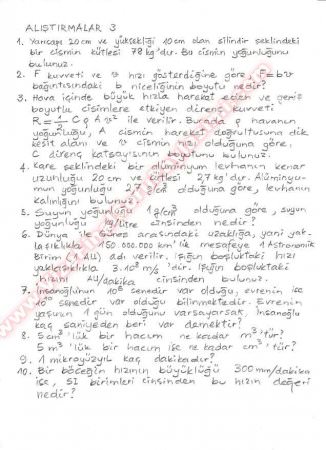 ALIŞTIRMALAR 3
1. Yarıçapı 20cm ve yüksekliği 10cm olan silindir şeklindeki
bir cismin kütlesi 78 kg'dır. Bu cismin yoğunluğunu
bulunuz.
2. F kuvveti ve v hızı gösterdiğine göre, F=bv
bağıntısındaki b niceliğinin boyutu nedir?
3. Hava içinde büyük hızla hareket eden ve geniş
boyutlu cisimlere etkiyen direnç kuvveti
R=1/2 CρAv² ile verilir. Burada ρ havanın
yoğunluğu, A cismin hareket doğrultusuna dik
kesit alanı ve v cismin hızı olduğuna göre,
C direnç katsayısının boyutunu bulunuz.
4. Kare şeklindeki bir alüminyum levhanın kenar
uzunluğu 20 cm ve kütlesi 2,7 kg'dır. Alüminyu-
mun yoğunluğu 2,7 g/cm³ olduğuna göre, levhanın
kalınlığını bulunuz.
5. Suyun yoğunluğu 1 g/cm³ olduğuna göre, suyun
yoğunluğu kg/litre cinsinden nedir?
6. Dünya ile Güneş arasındaki uzaklığa, yani yak-
laşıklıkla 150 000 000 km'lik mesafeye 1 Astronomik
Birim (1 AU) adı verilir. Işığın boşluktaki hızı
yaklaşıklıkla 3.10⁸ m/s 'dir. Işığın boşluktaki
hızını AU/dakika cinsinden bulunuz.
7. İnsanoğlunun 10⁶ senedir var olduğu, evrenin ise
10¹⁰ senedir var olduğu bilinmektedir. Evrenin
yaşının 1 gün olduğunu varsayarsak, insanoğlu
kaç saniyeden beri var demektir?
8. 5 cm³ 'lük bir hacim ne kadar m³'tür?
5 m³ 'lük bir hacim ise ne kadar cm³'tür?
9. 1 mikroyüzyıl kaç dakikadır?
10. Bir böceğin hızının büyüklüğü 300 mm/dakika
ise, SI birimleri cinsinden bu hızın değeri
nedir?